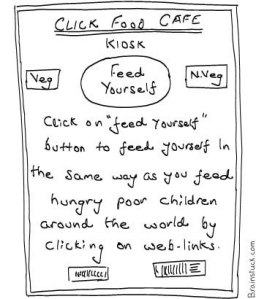 CLICK FOOD CAFE
KIOSK
Veg
Feed
Yourself
N.Veg
Click on "feed yourself"
button to feed yourself In
the same way as you feed
hungry poor children
around the world by
clicking on web-links.
Brainstuck.com